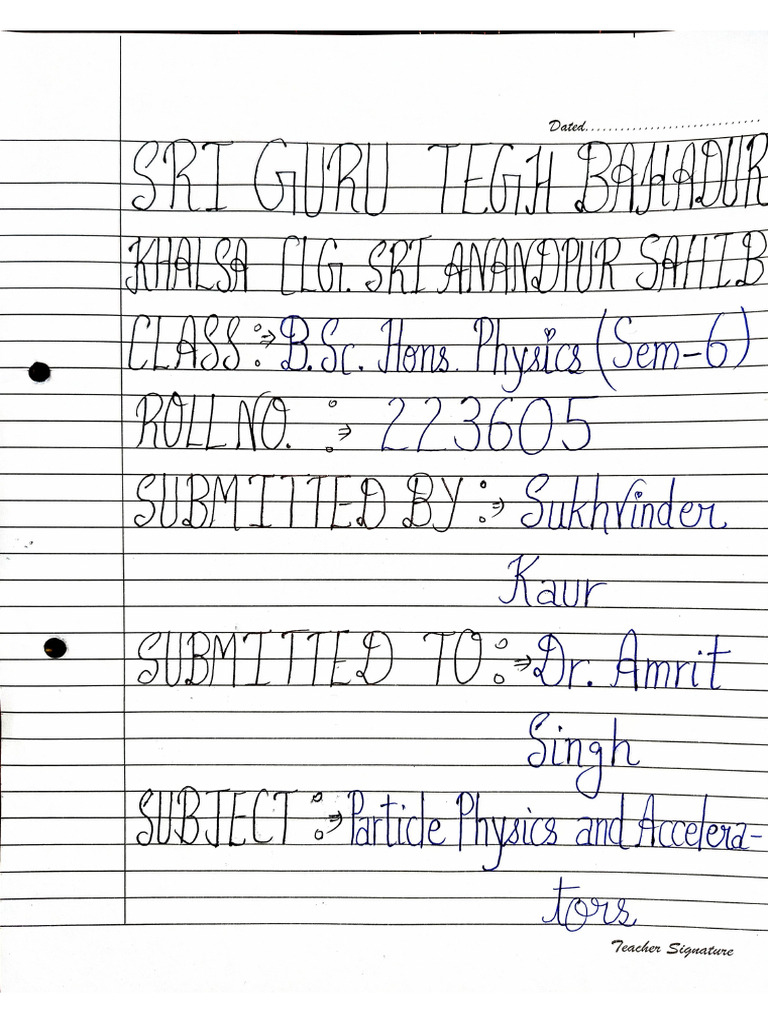 Dated..............................
SRI GURU TEGH BAHADUR
KHALSA CLG. SRI ANANDPUR SAHIB
CLASS :⇒ B.Sc. Hons. Physics (Sem-6)
ROLL NO. :⇒ 223605
SUBMITTED BY :⇒ Sukhvinder
Kaur
SUBMITTED TO :⇒ Dr. Amrit
Singh
SUBJECT :⇒ Particle Physics and Accelera-
tors
Teacher Signature